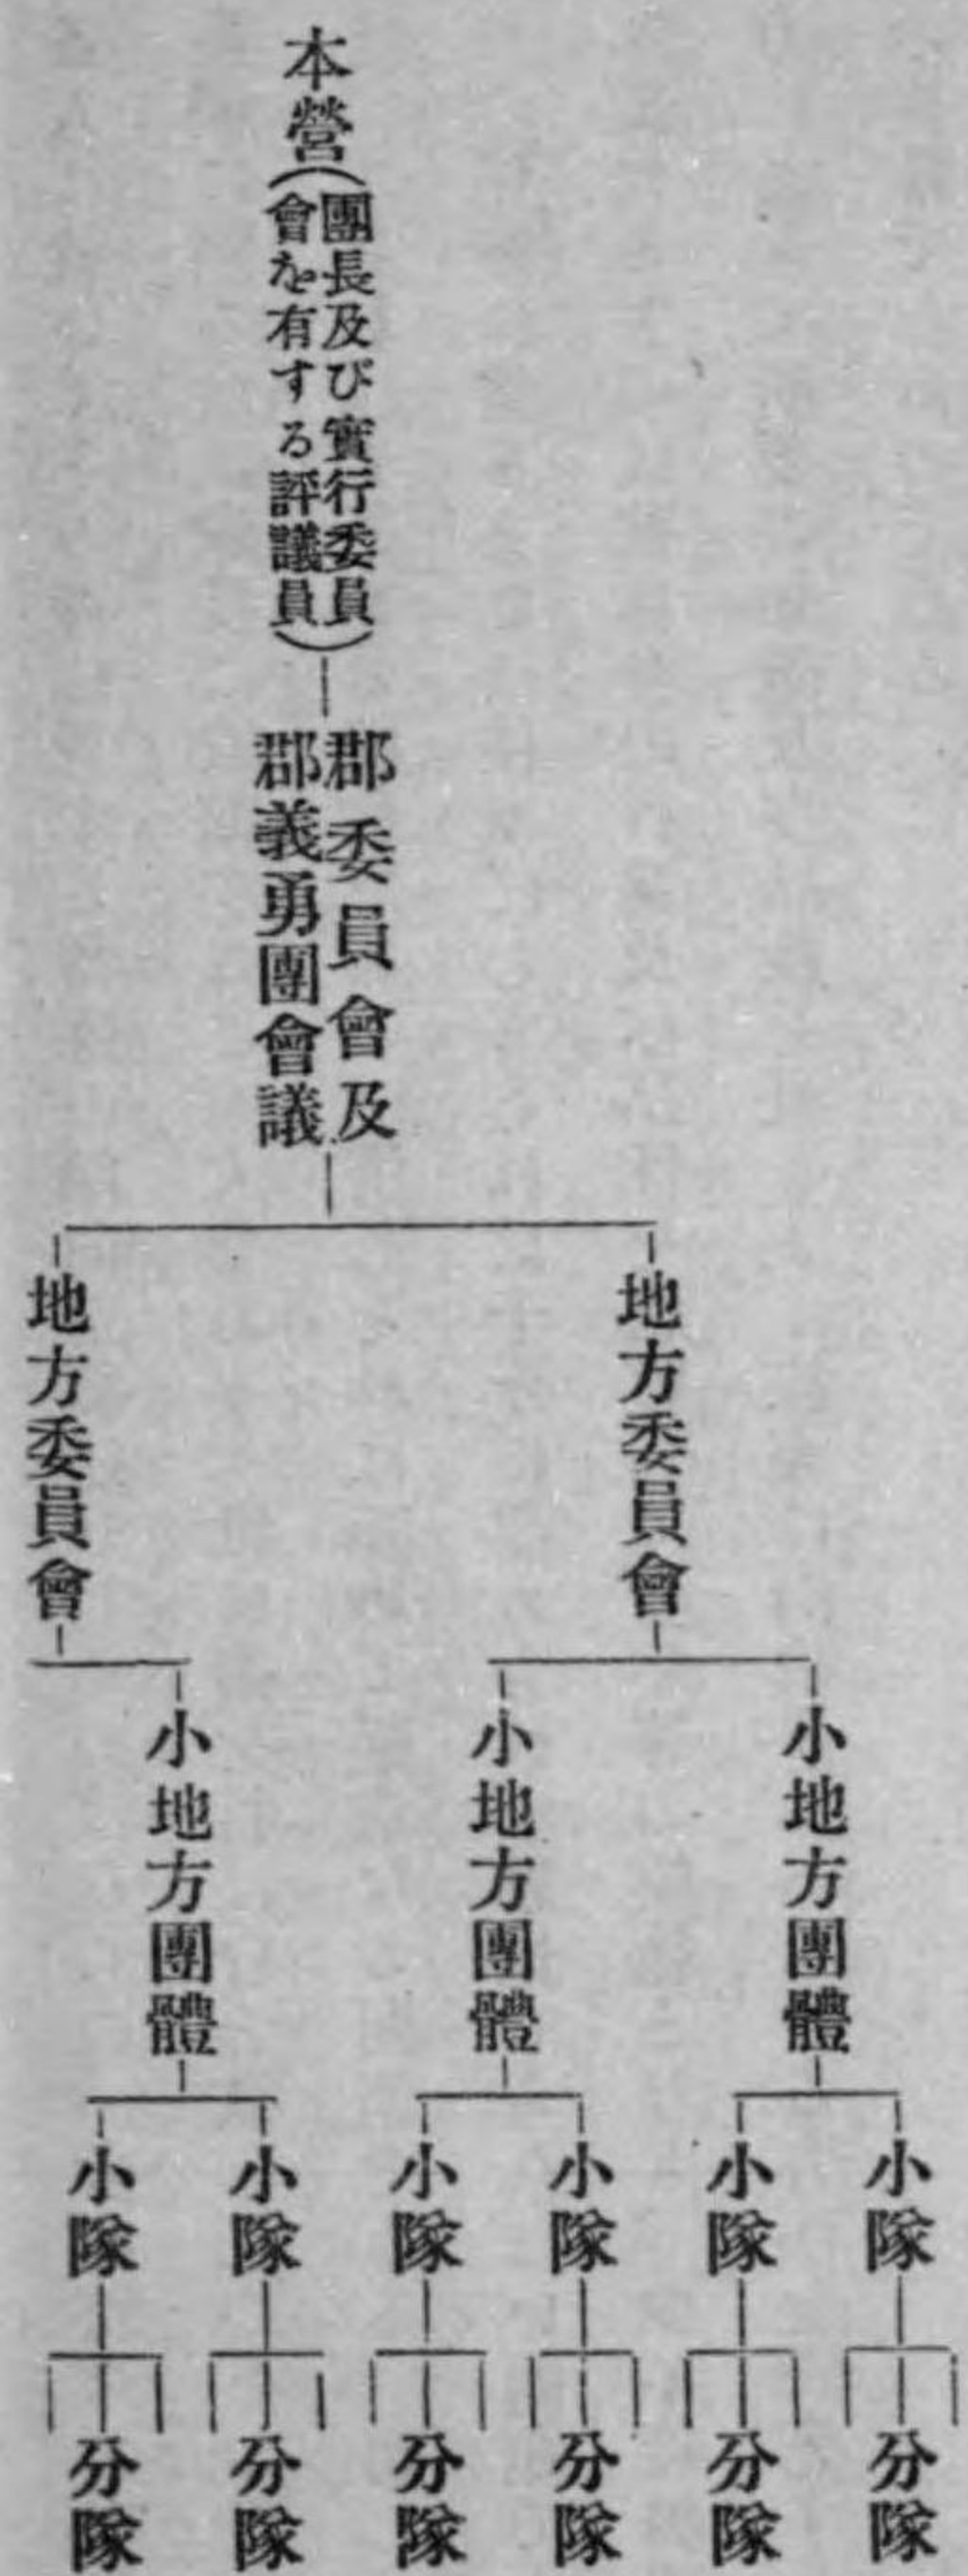 本營(團長及び實行委員
會を有する評議員)
郡委員會及
郡義勇團會議
地方委員會
地方委員會
小地方團體
小地方團體
小地方團體
小隊
小隊
小隊
小隊
小隊
小隊
分隊
分隊
分隊
分隊
分隊
分隊